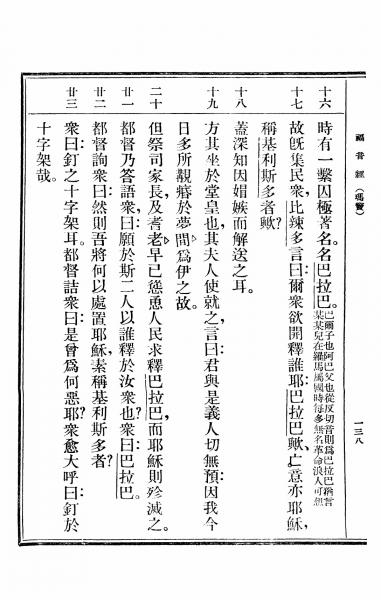 福音經(瑪竇)
一三八
十六 時有一繫囚極著名名巴拉巴。巴爾子也阿巴父也從反切音則爲巴拉巴猶言
某某兒在羅馬屬國時每多無名革命浪人可
十七 故旣集民衆,比辣多言曰:爾衆欲開釋誰耶:巴拉巴歟,亡意亦耶穌,
稱基利斯多者歟?
十八 蓋深知因媢嫉而解送之耳。
十九 方其坐於堂皇也,其夫人使就之,言曰:君與是義人切無預,因我今
日多所覯瘽於夢間,爲伊之故。
二十 但祭司家長,及耆老早已慫恿人民求釋巴拉巴,而耶穌則殄滅之。
廿一 都督乃答語衆曰:願於斯二人以誰釋於汝衆也?衆曰:巴拉巴。
廿二 都督詢衆曰:然則吾將何以處置耶穌,素稱基利斯多者?
廿三 衆曰:釘之十字架耳。都督詰衆曰:是曾爲何惡耶?衆愈大呼曰:釘於
十字架哉。